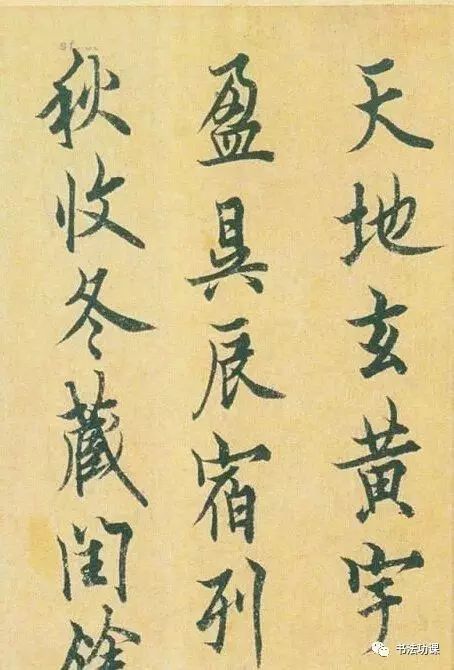 天地玄黄宇
盈昃辰宿列
秋收冬藏閏餘
书法功课